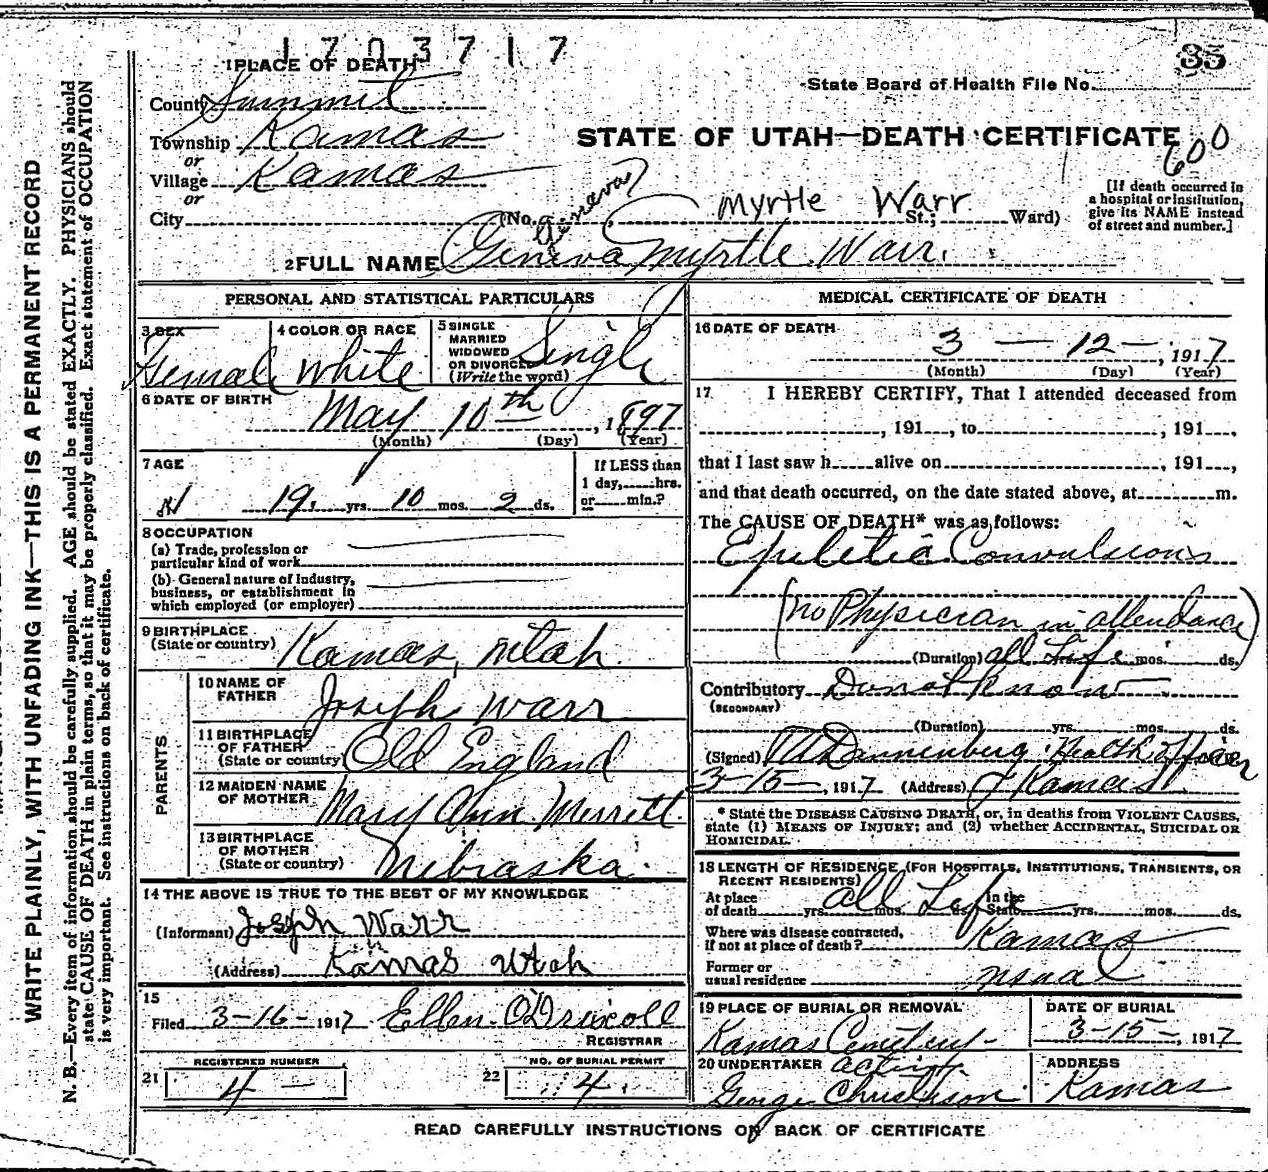 1703717
35
1 PLACE OF DEATH
State Board of Health File No.
County Summit
Township Kamas
or
Village Kamas
or
City (No. St.; Ward)
STATE OF UTAH—DEATH CERTIFICATE
600
[If death occurred in a hospital or institution, give its NAME instead of street and number.]
Geneva Myrtle Warr
2 FULL NAME Geneva Myrtle Warr.
PERSONAL AND STATISTICAL PARTICULARS
3 SEX Female
4 COLOR OR RACE White
5 SINGLE MARRIED WIDOWED OR DIVORCED (Write the word) Single
6 DATE OF BIRTH May 10th, 1897
(Month) (Day) (Year)
7 AGE 19 yrs. 10 mos. 2 ds.
If LESS than 1 day, hrs. or min.?
8 OCCUPATION
(a) Trade, profession or particular kind of work
(b) General nature of Industry, business, or establishment in which employed (or employer)
9 BIRTHPLACE (State or country) Kamas, Utah
PARENTS
10 NAME OF FATHER Joseph Warr
11 BIRTHPLACE OF FATHER (State or country) Old England
12 MAIDEN NAME OF MOTHER Mary Ann Merritt
13 BIRTHPLACE OF MOTHER (State or country) Nebraska
14 THE ABOVE IS TRUE TO THE BEST OF MY KNOWLEDGE
(Informant) Joseph Warr
(Address) Kamas Utah
15
Filed 3-16-1917 Ellen O'Driscoll
REGISTRAR
21 REGISTERED NUMBER 4
22 NO. OF BURIAL PERMIT 4.
MEDICAL CERTIFICATE OF DEATH
16 DATE OF DEATH 3 — 12 —, 1917
(Month) (Day) (Year)
17 I HEREBY CERTIFY, That I attended deceased from
, 191 , to , 191 ,
that I last saw h alive on , 191 ,
and that death occurred, on the date stated above, at m.
The CAUSE OF DEATH* was as follows:
Epiletic Convulsions
(no Physician in attendance)
(Duration) all Life mos. ds.
Contributory Do not know
(SECONDARY)
(Duration) yrs. mos. ds.
(Signed) Dannenberg Health Officer
3-15-, 1917 (Address) Kamas.
* State the DISEASE CAUSING DEATH, or, in deaths from VIOLENT CAUSES, state (1) MEANS OF INJURY; and (2) whether ACCIDENTAL, SUICIDAL OR HOMICIDAL.
18 LENGTH OF RESIDENCE (FOR HOSPITALS, INSTITUTIONS, TRANSIENTS, OR RECENT RESIDENTS)
At place of death yrs. all mos. Life ds. In the State yrs. mos. ds.
Where was disease contracted, if not at place of death? Kamas
Former or usual residence usual
19 PLACE OF BURIAL OR REMOVAL Kamas Cemetery
DATE OF BURIAL 3-15-, 1917
20 UNDERTAKER acting George Christenson
ADDRESS Kamas
READ CAREFULLY INSTRUCTIONS ON BACK OF CERTIFICATE
WRITE PLAINLY, WITH UNFADING INK—THIS IS A PERMANENT RECORD
N. B.—Every item of information should be carefully supplied. AGE should be stated EXACTLY. PHYSICIANS should
state CAUSE OF DEATH in plain terms, so that it may be properly classified. Exact statement of OCCUPATION
is very important. See instructions on back of certificate.